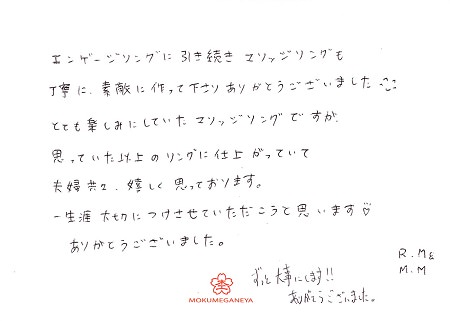 エンゲージリングに引き続きマリッジリングも
丁寧に、素敵に作って下さりありがとうございました
とても楽しみにしていたマリッジリングですが、
思っていた以上のリングに仕上がっていて
夫婦共々、嬉しく思っております。
一生涯大切につけさせていただこうと思います♡
ありがとうございました。
R.M&
M.M
ずっと大事にします!!
ありがとうございました。
MOKUMEGANEYA